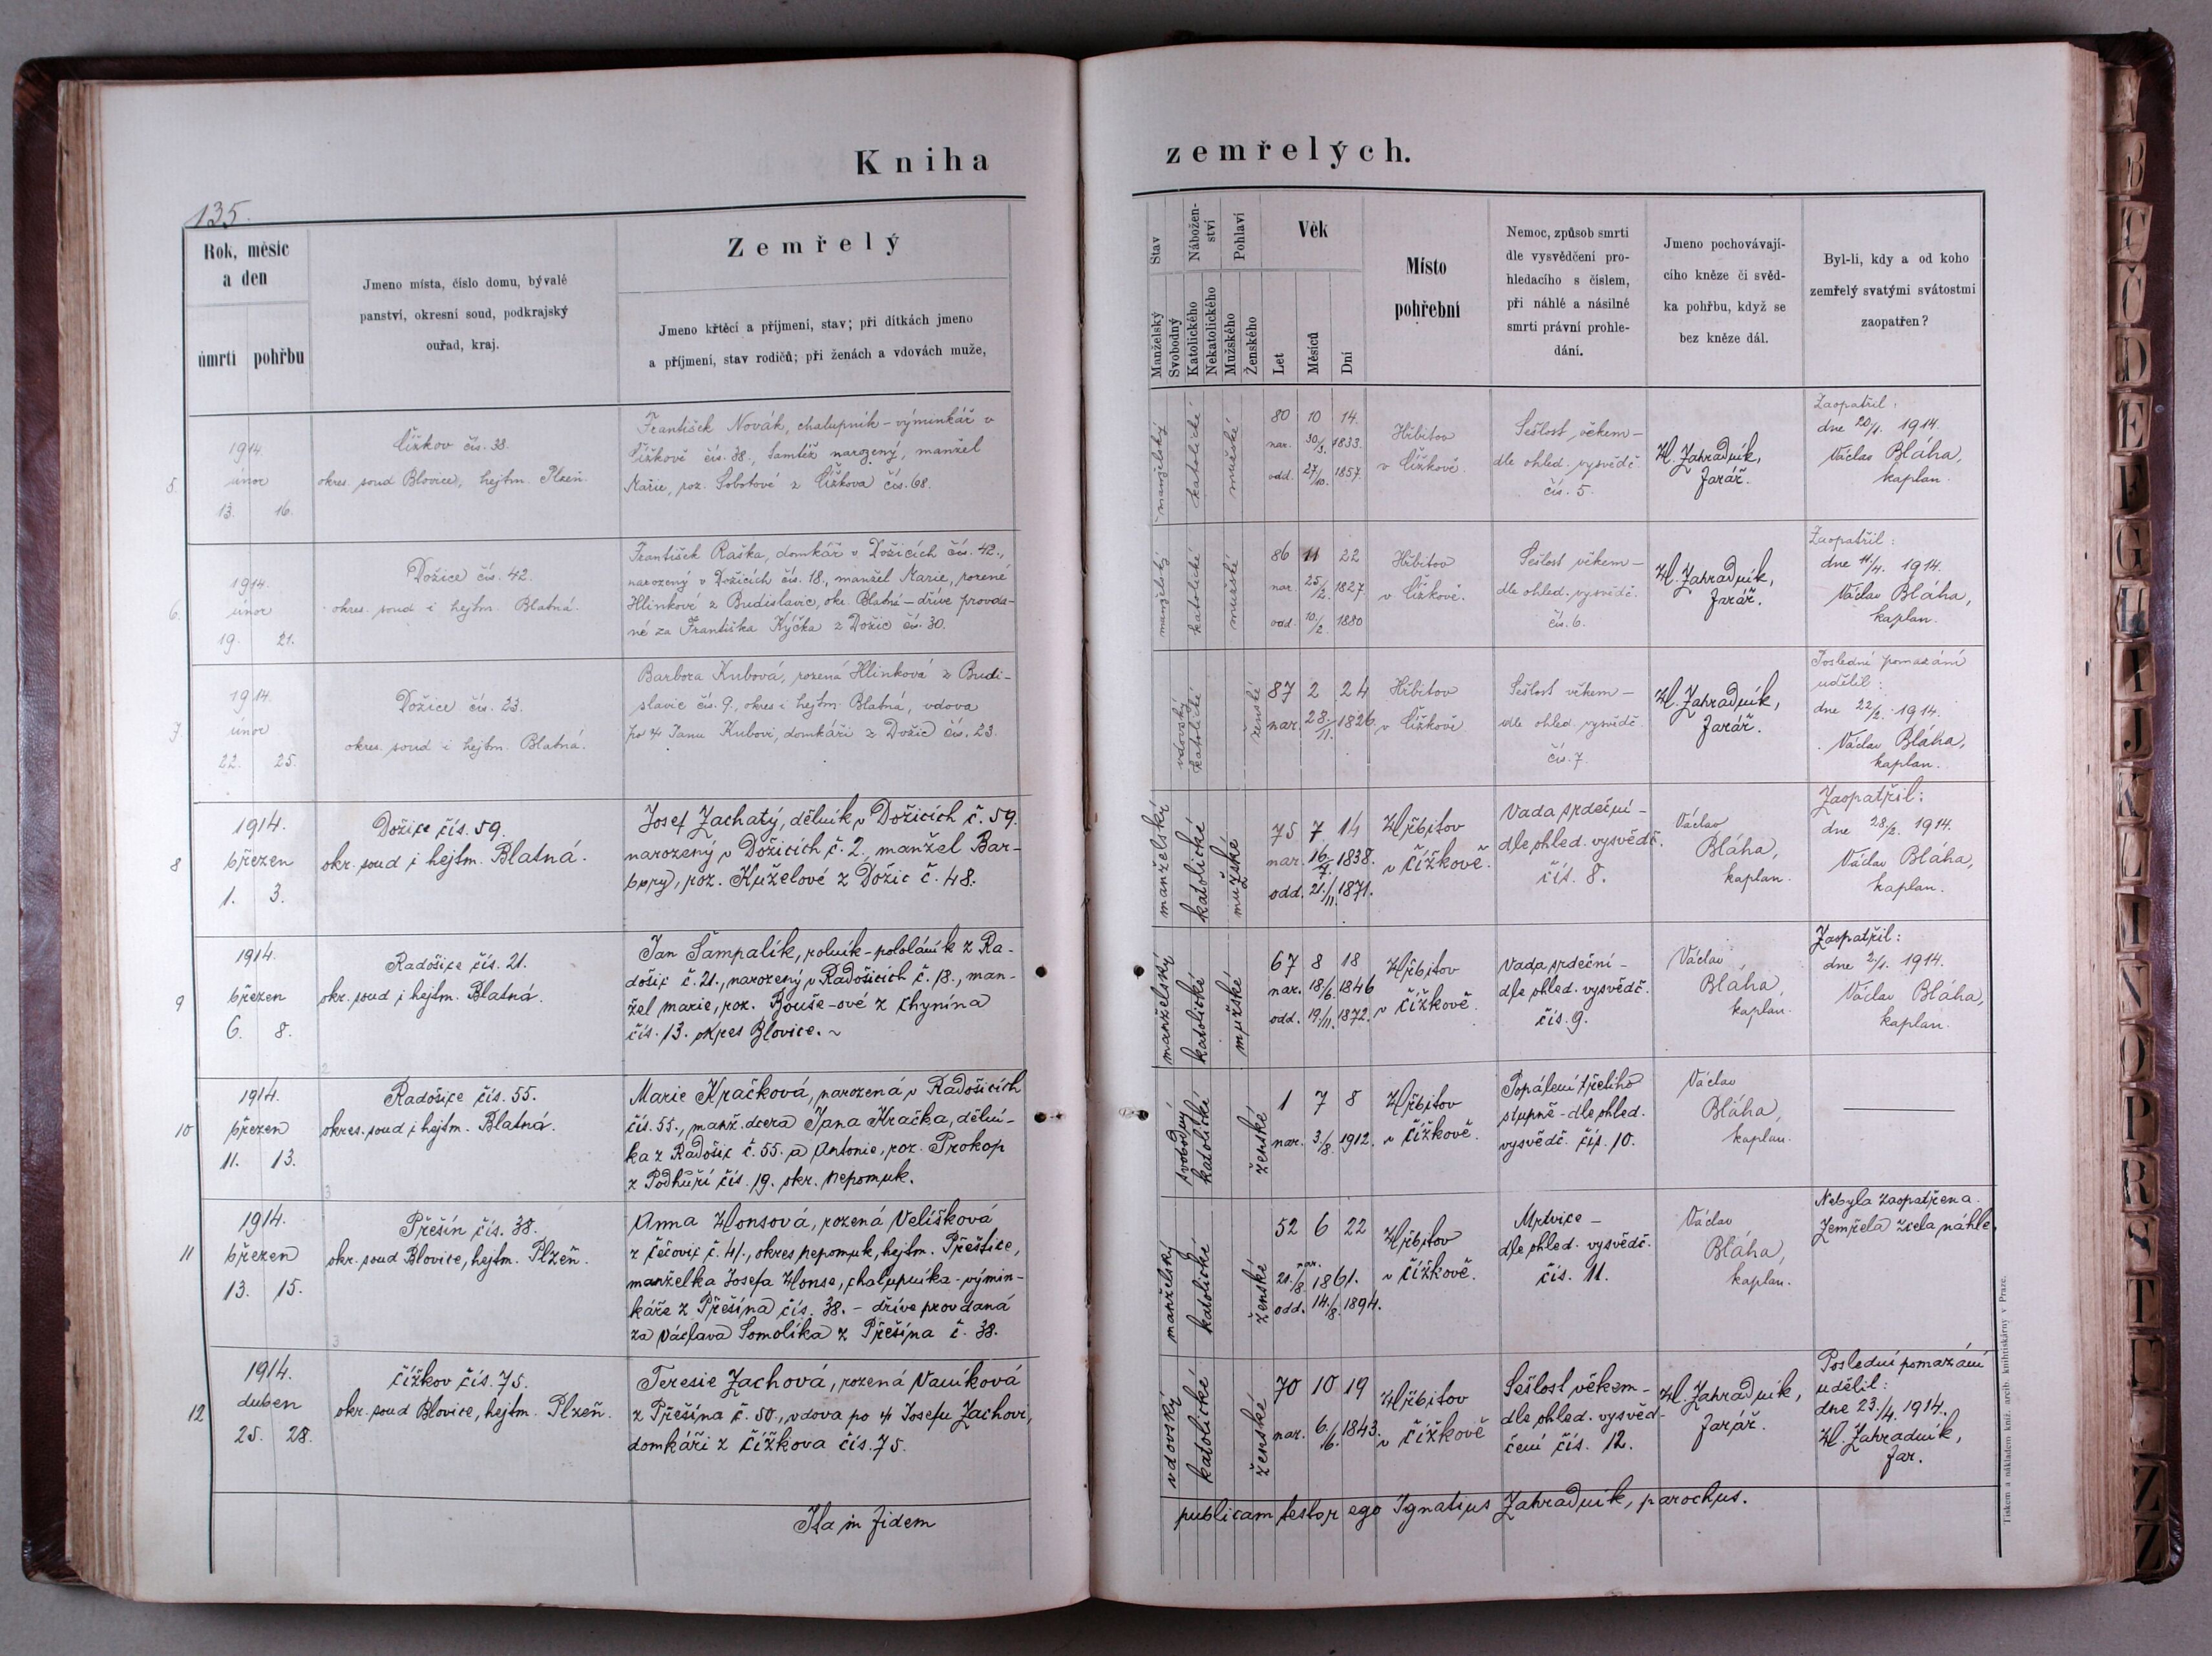 Kniha zemřelých.
135.
Rok, měsíc
a den
úmrtí pohřbu
Jmeno místa, číslo domu, bývalé
panství, okresní soud, podkrajský
ouřad, kraj.
Zemřelý
Jmeno křtěcí a příjmení, stav; při dítkách jmeno
a příjmení, stav rodičů; při ženách a vdovách muže,
Stav
Manželský
Svobodný
Nábožen-
ství
Katolického
Nekatolického
Pohlaví
Mužského
Ženského
Věk
Let
Měsíců
Dní
Místo
pohřební
Nemoc, způsob smrti
dle vysvědčení pro-
hledacího s číslem,
při náhlé a násilné
smrti právní prohle-
dání.
Jmeno pochovávají-
cího kněze či svěd-
ka pohřbu, když se
bez kněze dál.
Byl-li, kdy a od koho
zemřelý svatými svátostmi
zaopatřen?
5.
1914.
únor
13. 16.
Čížkov čís. 38.
okres. soud Blovice, hejtm. Plzeň.
František Novák, chalupník – výminkář v
Čížkově čís. 38., tamtéž narozený, manžel
Marie, roz. Sobotové z Čížkova čís. 68.
manželský
katolické
mužské
80 10 14.
nar. 30/3. 1833.
odd. 27/10. 1857.
Hřbitov
v Čížkově.
Sešlost věkem –
dle ohled. vysvědč.
čís. 5.
H. Zahradník,
farář.
Zaopatřil:
dne 20/1. 1914.
Václav Bláha,
kaplan.
6.
1914.
únor
19. 21.
Dožice čís. 42.
okres. soud i hejtm. Blatná.
František Raška, domkář v Dožicích čís. 42.,
narozený v Dožicích čís. 18., manžel Marie, rozené
Hlinkové z Budislavic, okr. Blatná – dříve provda-
né za Františka Kýčka z Dožic čís. 30.
manželský
katolické
mužské
86 11 22
nar. 25/2. 1827.
odd. 10/2. 1880
Hřbitov
v Čížkově.
Sešlost věkem –
dle ohled. vysvědč.
čís. 6.
H. Zahradník,
farář.
Zaopatřil:
dne 11/4. 1914.
Václav Bláha,
kaplan.
7
1914.
únor
22. 25.
Dožice čís. 23.
okres. soud i hejtm. Blatná.
Barbora Kubová, rozená Hlinková z Budi-
slavic čís. 9., okres i hejtm. Blatná, vdova
po † Janu Kubovi, domkáři z Dožic čís. 23.
vdovský
katolické
ženské
87 2 24
nar. 28./11. 1826.
Hřbitov
v Čížkově
Sešlost věkem –
dle ohled. vysvědč.
čís. 7.
H. Zahradník,
farář.
Poslední pomazání
udělil:
dne 22/2. 1914.
Václav Bláha,
kaplan.
8
1914.
březen
1. 3.
Dožice čís. 59.
okr. soud i hejtm. Blatná.
Josef Zachatý, dělník v Dožicích č. 59.
narozený v Dožicích č. 2., manžel Bar-
bory, roz. Kuželové z Dožic č. 48.
manželský
katolické
mužské
75 7 14
nar. 16/7. 1838.
odd. 21./11. 1871.
Hřbitov
v Čížkově.
Vada srdeční –
dle ohled. vysvědč.
čís. 8.
Václav
Bláha,
kaplan.
Zaopatřil:
dne 28/2. 1914.
Václav Bláha,
kaplan.
9
1914.
březen
6. 8.
Radošice čís. 21.
okr. soud i hejtm. Blatná.
Jan Šampalík, rolník – pololáník z Ra-
došic č. 21., narozený v Radošicích č. 18., man-
žel marie, roz. Bouše-ové z Chynína
čís. 13. okres Blovice. ~
manželský
katolické
mužské
67 8 18
nar. 18/6. 1846
odd. 19/11. 1872.
Hřbitov
v Čížkově.
Vada srdeční –
dle ohled. vysvědč.
čís. 9.
Václav
Bláha,
kaplan.
Zaopatřil:
dne 2/1. 1914.
Václav Bláha,
kaplan.
10
1914.
březen
11. 13.
Radošice čís. 55.
okres. soud i hejtm. Blatná.
Marie Kračková, narozená v Radošicích
čís. 55., manž. dcera Jana Kračka, dělní-
ka z Radošic č. 55. a Antonie, roz. Prokop
z Podhůří čís. 19. okr. Nepomuk.
svobodný
katolické
ženské
1 7 8
nar. 3./8. 1912.
Hřbitov
v Čížkově.
Popálení třetího
stupně – dle ohled.
vysvědč. čís. 10.
Václav
Bláha,
kaplan.
11
1914.
březen
13. 15.
Přešín čís. 38.
okr. soud Blovice, hejtm. Plzeň.
Anna Honsová, rozená Velíšková
z Čečovic č. 41., okres nepomuk, hejtm. Přeštice,
manželka Josefa Honse, chalupníka – výmin-
káře z Přešína čís. 38. – dříve provdaná
za Václava Somolíka z Přešína č. 38.
manželský
katolické
ženské
52 6 22
nar.
21./8. 1861.
odd. 14./8. 1894.
Hřbitov
v Čížkově.
Mrtvice –
dle ohled. vysvědč.
čís. 11.
Václav
Bláha,
kaplan.
Nebyla zaopatřena.
Zemřela zcela náhle.
12
1914.
duben
25. 28.
Čížkov čís. 75.
okr. soud Blovice, hejtm. Plzeň.
Teresie Zachová, rozená Vaníková
z Přešína č. 50., vdova po † Josefu Zachovi,
domkáři z Čížkova čís. 75.
vdovský
katolické
ženské
70 10 19
nar. 6./6. 1843.
Hřbitov
v Čížkově
Sešlost věkem –
dle ohled. vysvěd-
čení čís. 12.
H. Zahradník,
farář.
Poslední pomazání
udělil:
dne 23./4. 1914.
H. Zahradník,
far.
Ita in fidem publicam testor ego Ignatius Zahradník, parochus.
Tiskem a nákladem kníž. arcib. knihtiskárny v Praze.
B
C
Č
D
E
F
G
H
I
J
K
L
N
O
P
R
S
T
Z
Z